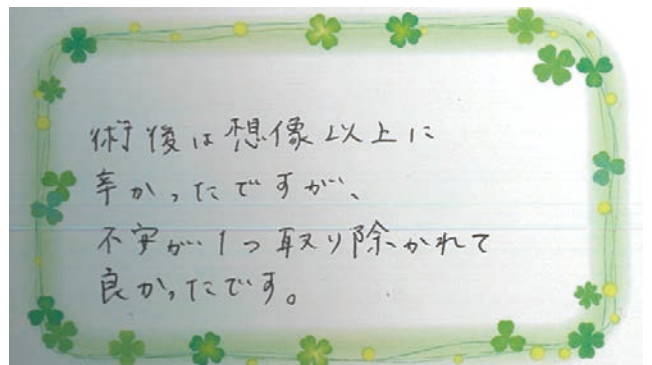 術後は想像以上に
辛かったですが、
不安が1つ取り除かれて
良かったです。